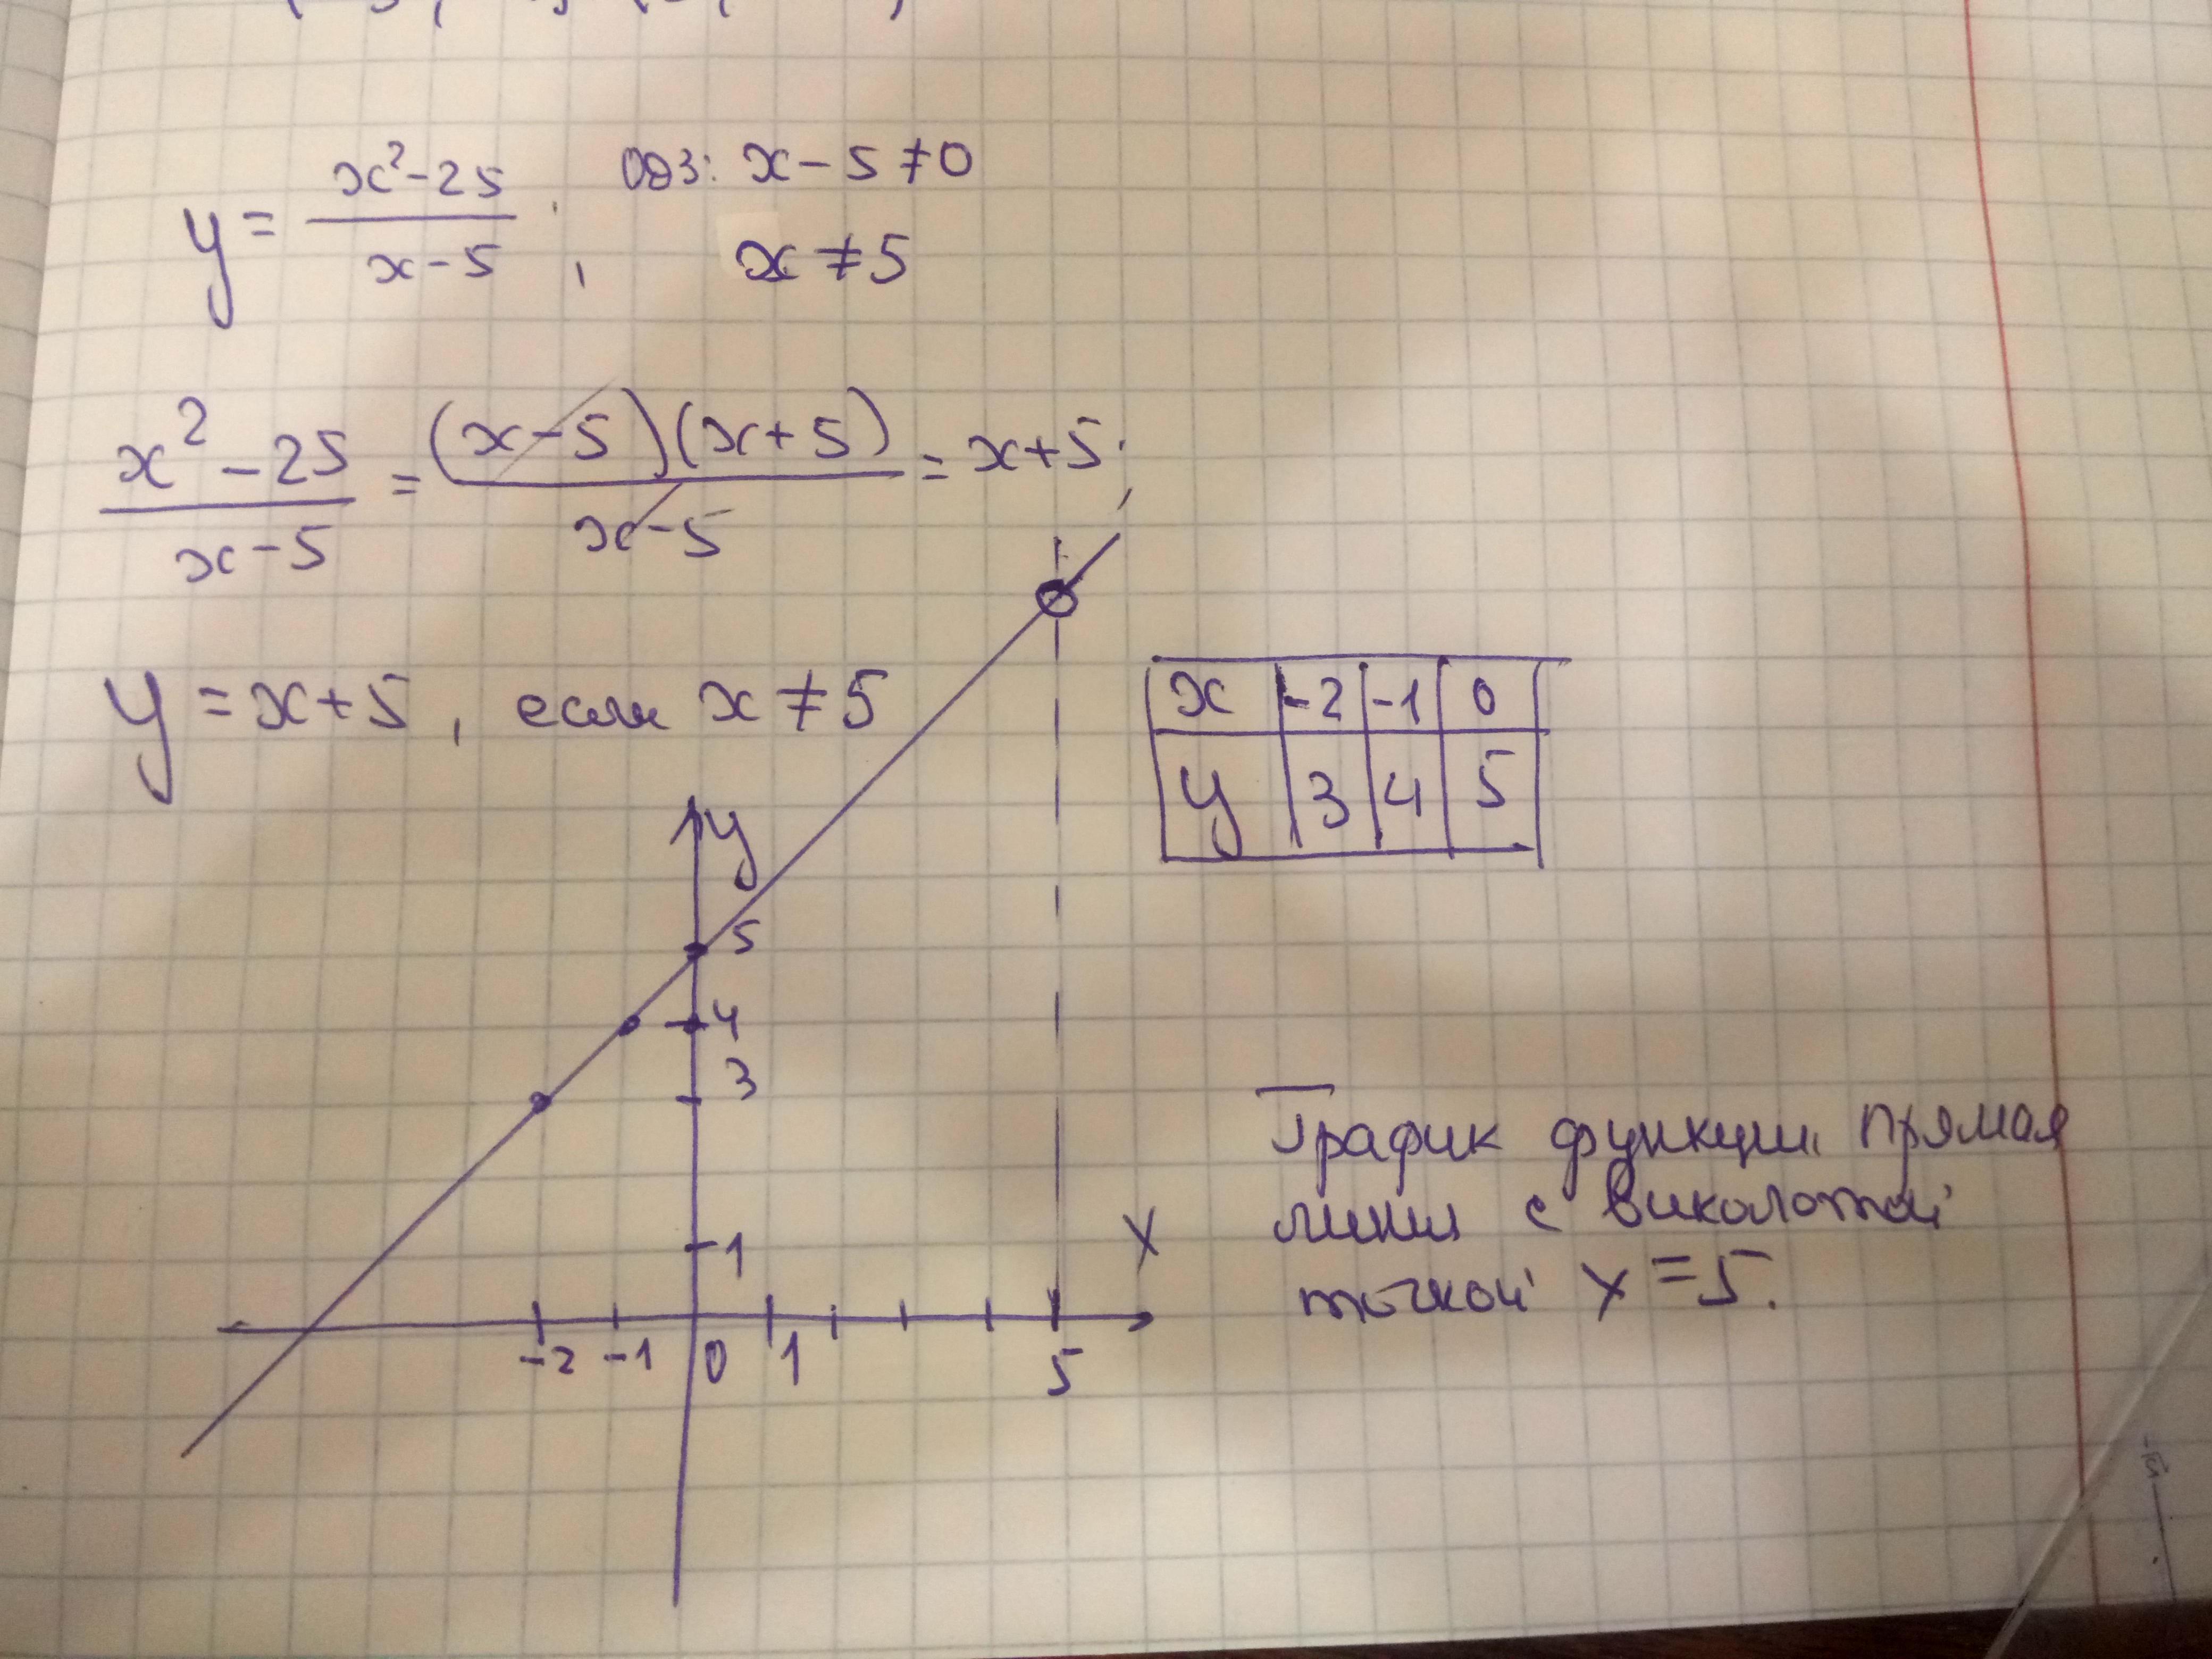 y = (x² - 25)/(x - 5); ОДЗ: x - 5 ≠ 0
x ≠ 5
(x² - 25)/(x - 5) = ((x - 5)(x + 5))/(x - 5) = x + 5;
y = x + 5, если x ≠ 5
x -2 -1 0
y 3 4 5
y
5
4
3
1
x
-2 -1 0 1 5
График функции прямая
линия с виколотой
точкой x = 5.